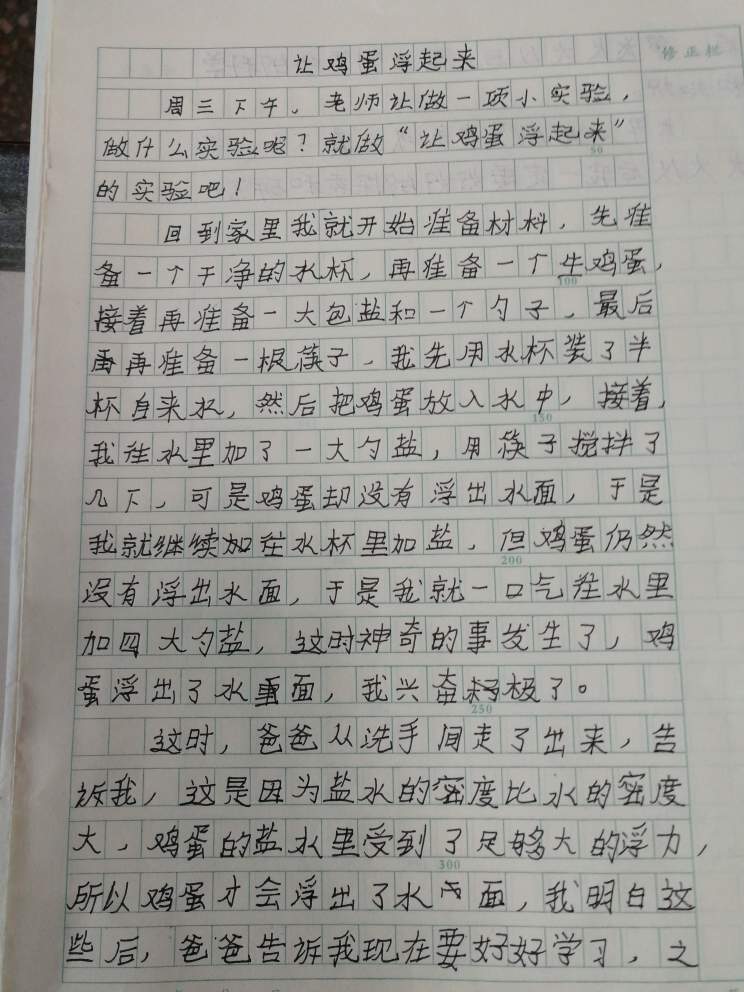 让鸡蛋浮起来
修正栏
周三下午，老师让做一项小实验，
做什么实验呢？就做“让鸡蛋浮起来”
50
的实验吧！
回到家里我就开始准备材料，先准
备一个干净的水杯，再准备一个生鸡蛋，
100
接着再准备一大包盐和一个勺子，最后
再准备一根筷子，我先用水杯装了半
杯自来水，然后把鸡蛋放入水中，接着，
150
我往水里加了一大勺盐，用筷子搅拌了
几下，可是鸡蛋却没有浮出水面，于是
我就继续加往水杯里加盐，但鸡蛋仍然
200
没有浮出水面，于是我就一口气往水里
加四大勺盐，这时神奇的事发生了，鸡
蛋浮出了水面，我兴奋极了。
250
这时，爸爸从洗手间走了出来，告
诉我，这是因为盐水的密度比水的密度
大，鸡蛋的盐水里受到了足够大的浮力，
300
所以鸡蛋才会浮出了水面，我明白这
些后，爸爸告诉我现在要好好学习，之